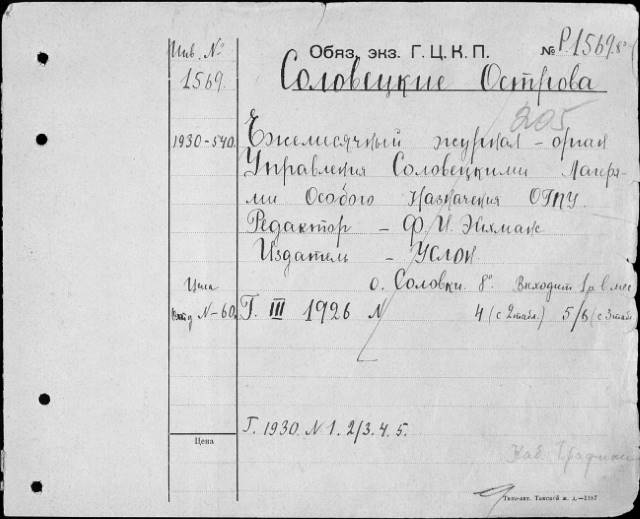 Инв. №
1569.
Обяз. экз. Г. Ц. К. П.
№ Р1569
Соловецкие Острова
205
1930-540.
Ежемесячный журнал - орган
Управления Соловецкими Лагеря-
ми Особого Назначения ОГПУ.
Редактор - Ф. И. Эйхманс
Издатель - Услон
о. Соловки. 8°. Выходит 1 р. в мес
Цена
отд № - 60к
Г. III 1926 № 4 (с 2 табл.) 5/6 (с 3 табл
Г. 1930. № 1. 2/3. 4. 5.
Цена
Каб. Графики
Типо-лит. Таганской ж. д.